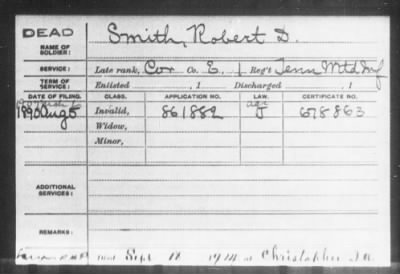 DEAD
NAME OF SOLDIER: Smith, Robert D.
SERVICE: Late rank, Cor Co. E, 1 Reg't Tenn Mtd Inf
TERM OF SERVICE: Enlisted , 1 Discharged , 1
DATE OF FILING. CLASS. APPLICATION NO. LAW. CERTIFICATE NO.
1890 Aug 5 Invalid, 861882 J 678863
Widow,
Minor,
ADDITIONAL SERVICES:
REMARKS:
Died Sept 12 1924 at Christopher